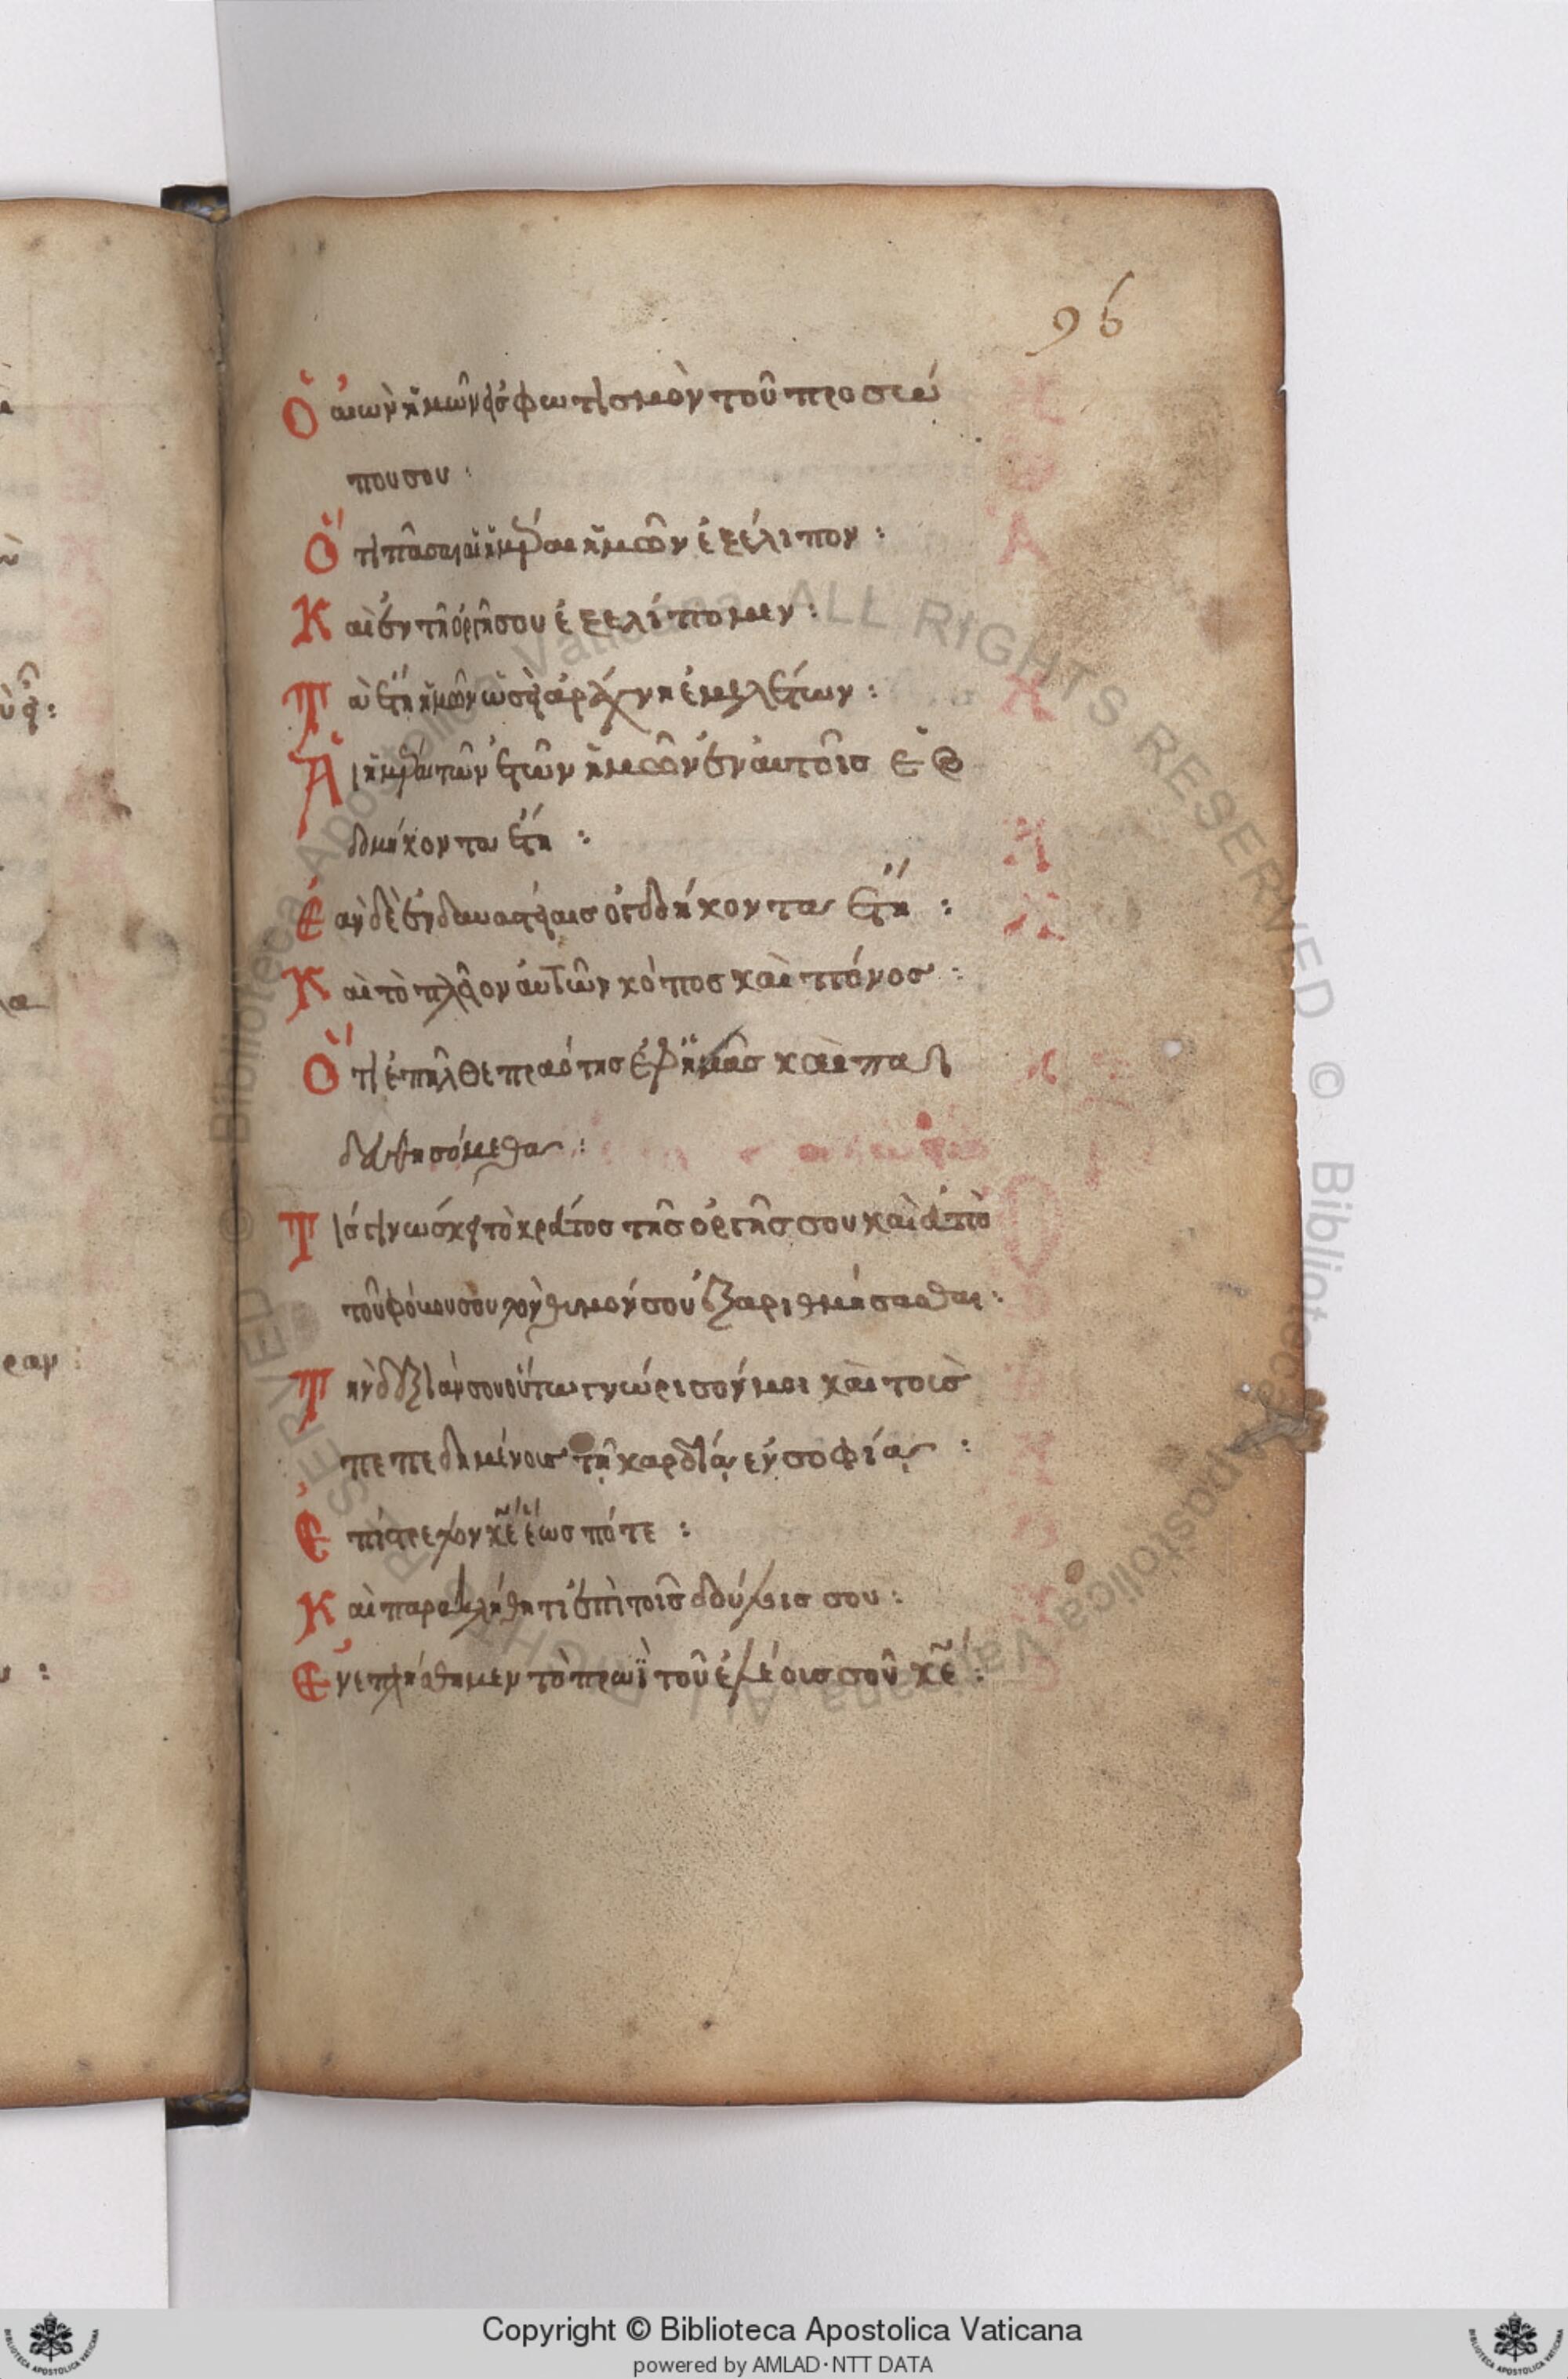 96
Ὁ ἀιὼν ἡμῶν εἰς φωτισμὸν τοῦ προσώ
που σου :
Ὅτι πᾶσαι αἱ ἡμέραι ἡμῶν ἐξέλιπον :
Καὶ ἐν τῆ ὀργῆ σου ἐξελίπομεν :
Τὰ ἔτη ἡμῶν ὡσεὶ ἀράχνη ἐμελέτων :
Αἱ ἡμέραι τῶν ἐτῶν ἡμῶν ἐν ἀυτοῖς ἑβ
δομήκοντα ἔτη :
Ἐὰν δὲ ἐν δυναστείαις ὀγδοήκοντα ἔτη :
Καὶ τὸ πλεῖον ἀυτῶν κόπος καὶ πόνος :
Ὅτι ἐπῆλθε πραότης ἐφ ἡμᾶς καὶ παι
δευθησόμεθα :
Τίς γινώσκει τὸ κράτος τῆς ὀργῆς σου καὶ ἀπὸ
τοῦ φόβου σου τὸν θυμόν σου ἐξαριθμήσασθαι :
Τὴν δεξιάν σου οὕτω γνώρισόν μοι καὶ τοὺς
πεπεδημένους τῇ καρδίᾳ ἐν σοφίᾳ :
Ἐπίστρεψον κε̄ ἕως πότε :
Καὶ παρακλήθητι ἐπὶ τοῖς δούλοις σου :
Ἐνεπλήσθημεν τὸ πρωῒ τοῦ ἐλέους σοῦ κε̄ :
© Biblioteca Apostolica Vaticana ALL RIGHTS RESERVED © Biblioteca Apostolica Vaticana ALL RIGHTS RESERVED
Copyright © Biblioteca Apostolica Vaticana
powered by AMLAD·NTT DATA